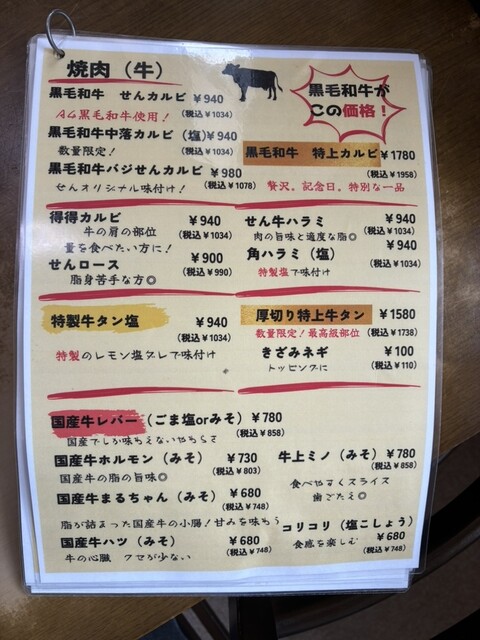 焼肉（牛）
黒毛和牛が
この価格！
黒毛和牛 せんカルビ ￥940
A4黒毛和牛使用！ （税込￥1034）
黒毛和牛中落カルビ（塩）￥940
数量限定！ （税込￥1034）
黒毛和牛バジせんカルビ ￥980
せんオリジナル味付け！ （税込￥1078）
黒毛和牛 特上カルビ ￥1780
（税込￥1958）
贅沢。記念日。特別な一品
得得カルビ ￥940
牛の肩の部位 （税込￥1034）
量を食べたい方に！
せんロース ￥900
脂身苦手な方◎ （税込￥990）
せん牛ハラミ ￥940
肉の旨味と適度な脂◎ （税込￥1034）
角ハラミ（塩） ￥940
特製塩で味付け （税込￥1034）
特製牛タン塩 ￥940
（税込￥1034）
特製のレモン塩ダレで味付け
厚切り特上牛タン ￥1580
数量限定！最高級部位 （税込￥1738）
きざみネギ ￥100
トッピングに （税込￥110）
国産牛レバー（ごま塩orみそ）￥780
国産でしか味わえないやわらさ （税込￥858）
国産牛ホルモン（みそ） ￥730
国産牛の脂の旨味◎ （税込￥803）
国産牛まるちゃん（みそ） ￥680
（税込￥748）
脂が詰まった国産牛の小腸！甘みを味わう
国産牛ハツ（みそ） ￥680
牛の心臓 クセが少ない （税込￥748）
牛上ミノ（みそ）￥780
（税込￥858）
食べやすくスライス
歯ごたえ◎
コリコリ（塩こしょう）
食感を楽しむ ￥680
（税込￥748）